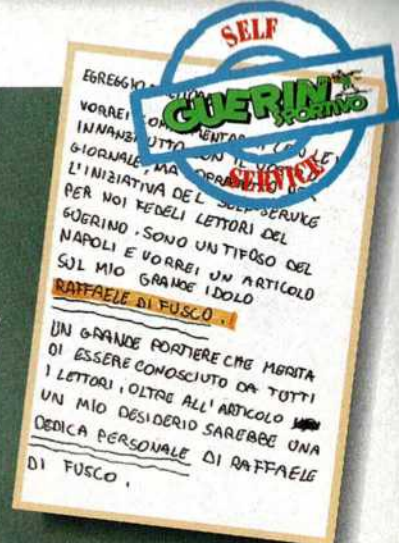 SELF
GUERIN SPORTIVO
SERVICE
EGREGGIO
VORREI CON LEI
INNANZITUTTO CON IL
GIORNALE, MA
L'INIZIATIVA DEL SELF SERVICE
PER NOI FEDELI LETTORI DEL
GUERINO. SONO UN TIFOSO DEL
NAPOLI E VORREI UN ARTICOLO
SUL MIO GRANDE IDOLO
RAFFAELE DI FUSCO.
UN GRANDE PORTIERE CHE MERITA
DI ESSERE CONOSCIUTO DA TUTTI
I LETTORI, OLTRE ALL'ARTICOLO
UN MIO DESIDERIO SAREBBE UNA
DEDICA PERSONALE DI RAFFAELE
DI FUSCO.